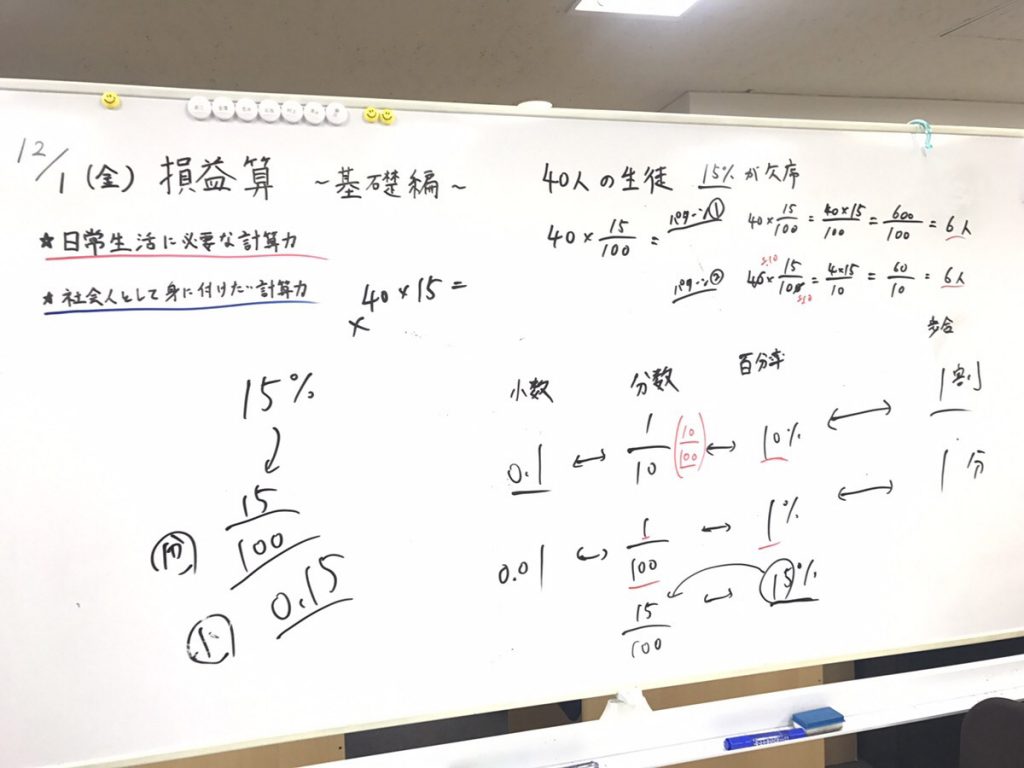 12/1 (金) 損益算 ~基礎編~
★日常生活に必要な計算力
★社会人として身に付けたい計算力
40×15=
×
15%
↓
15/100
分
0.15
小
40人の生徒 15%が欠席
40×15/100=
パターン① 40×15/100=40×15/100=600/100=6人
パターン② 40×15/100=4×15/10=60/10=6人
÷10
÷10
小数 分数 百分率 歩合
0.1 ↔ 1/10 (10/100) ↔ 10% ↔ 1割
0.01 ↔ 1/100 ↔ 1% ↔ 1分
15/100 ↔ 15%